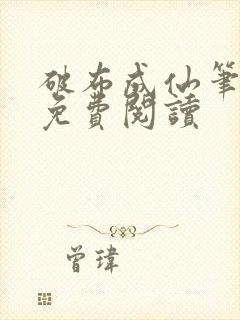 破布成仙筆
免費閱讀
曾瑋